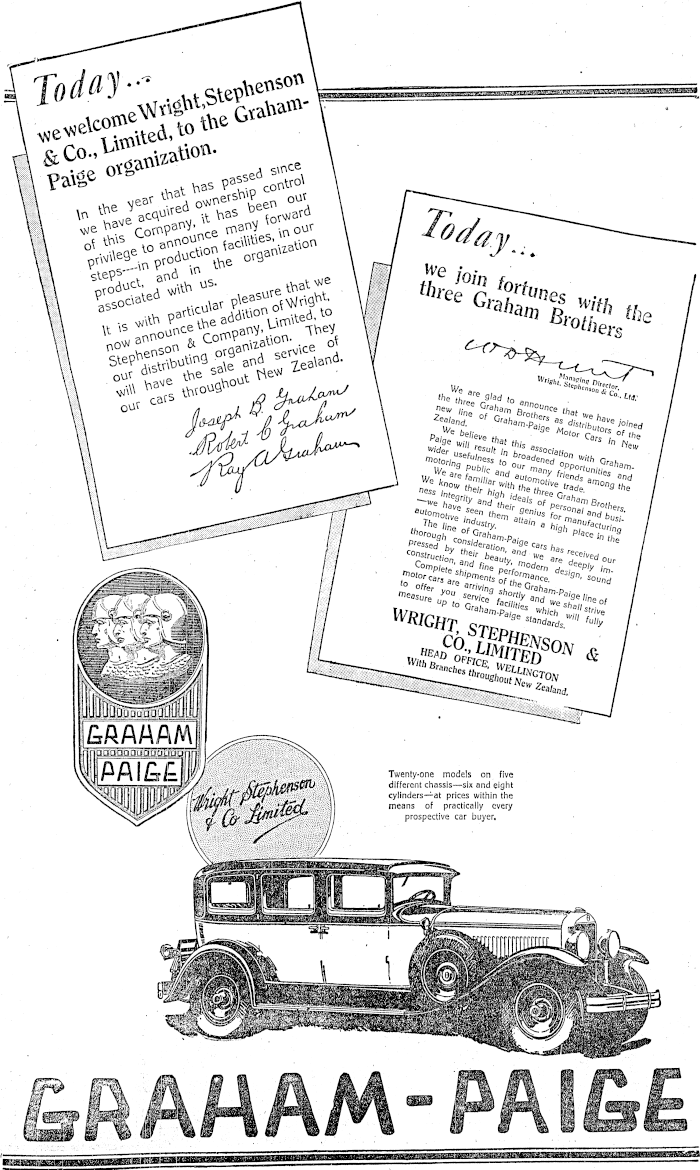 Today...
we welcome Wright, Stephenson
& Co., Limited, to the Graham-
Paige organization.
In the year that has passed since
we have acquired ownership control
of this Company, it has been our
privilege to announce many forward
steps----in production facilities, in our
product, and in the organization
associated with us.
It is with particular pleasure that we
now announce the addition of Wright,
Stephenson & Company, Limited, to
our distributing organization. They
will have the sale and service of
our cars throughout New Zealand.
Joseph B. Graham
Robert C Graham
Ray A Graham
Today...
we join fortunes with the
three Graham Brothers
W D Hunt
Managing Director,
Wright, Stephenson & Co., Ltd.
We are glad to announce that we have joined
the three Graham Brothers as distributors of the
new line of Graham-Paige Motor Cars in New
Zealand.
We believe that this association with Graham-
Paige will result in broadened opportunities and
wider usefulness to our many friends among the
motoring public and automotive trade.
We are familiar with the three Graham Brothers.
We know their high ideals of personal and busi-
ness integrity and their genius for manufacturing
—we have seen them attain a high place in the
automotive industry.
The line of Graham-Paige cars has received our
thorough consideration, and we are deeply im-
pressed by their beauty, modern design, sound
construction, and fine performance.
Complete shipments of the Graham-Paige line of
motor cars are arriving shortly and we shall strive
to offer you service facilities which will fully
measure up to Graham-Paige standards.
WRIGHT, STEPHENSON &
CO., LIMITED
HEAD OFFICE, WELLINGTON
With Branches throughout New Zealand.
GRAHAM
PAIGE
Wright Stephenson
& Co Limited
Twenty-one models on five
different chassis—six and eight
cylinders—at prices within the
means of practically every
prospective car buyer.
GRAHAM-PAIGE